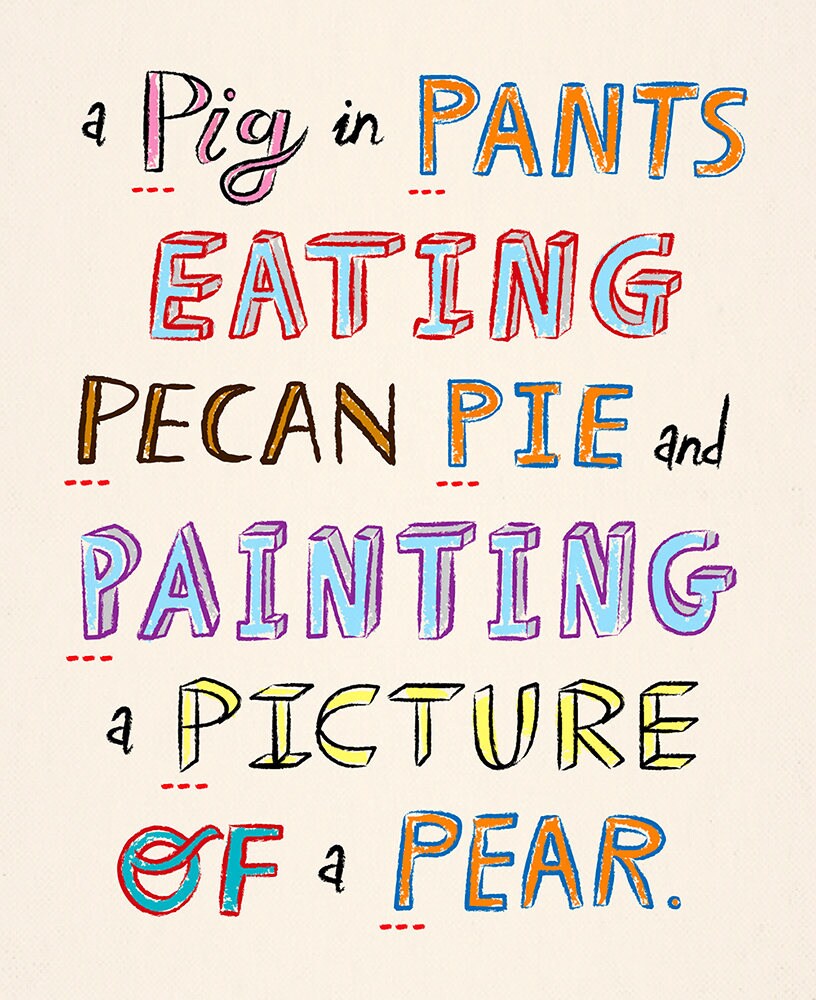 a Pig in PANTS
EATING
PECAN PIE and
PAINTING
a PICTURE
OF a PEAR.